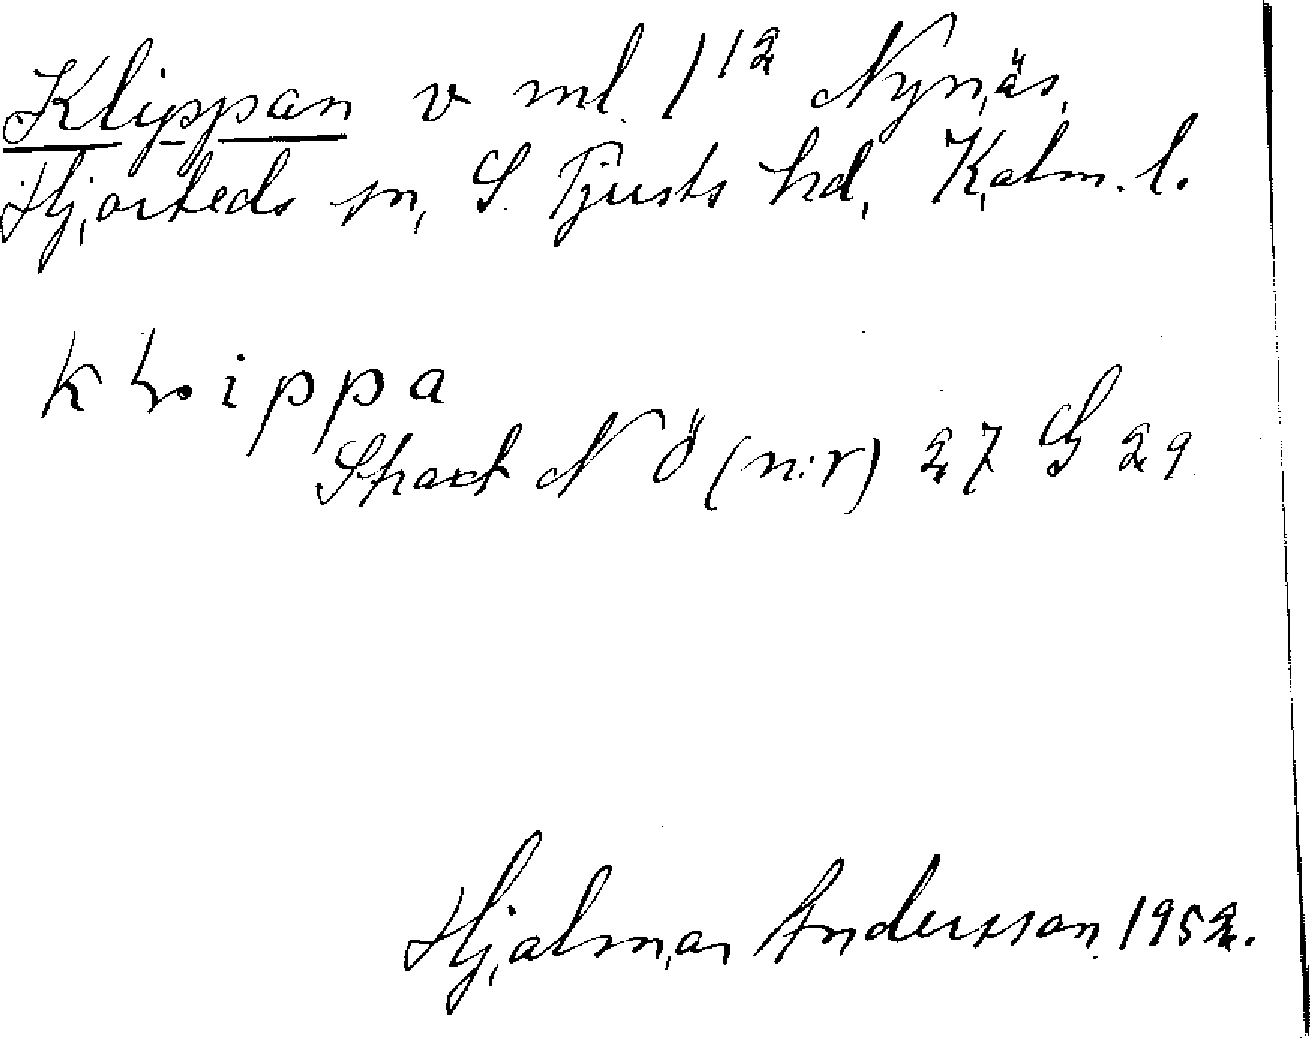 Klippan v ml. 1¹² Nynäs,
Hjorteds sn, S. Tjusts hd, Kalm. l.
klippa
N ö (n:r) 27 G 29
Hjalmar Andersson 1952.